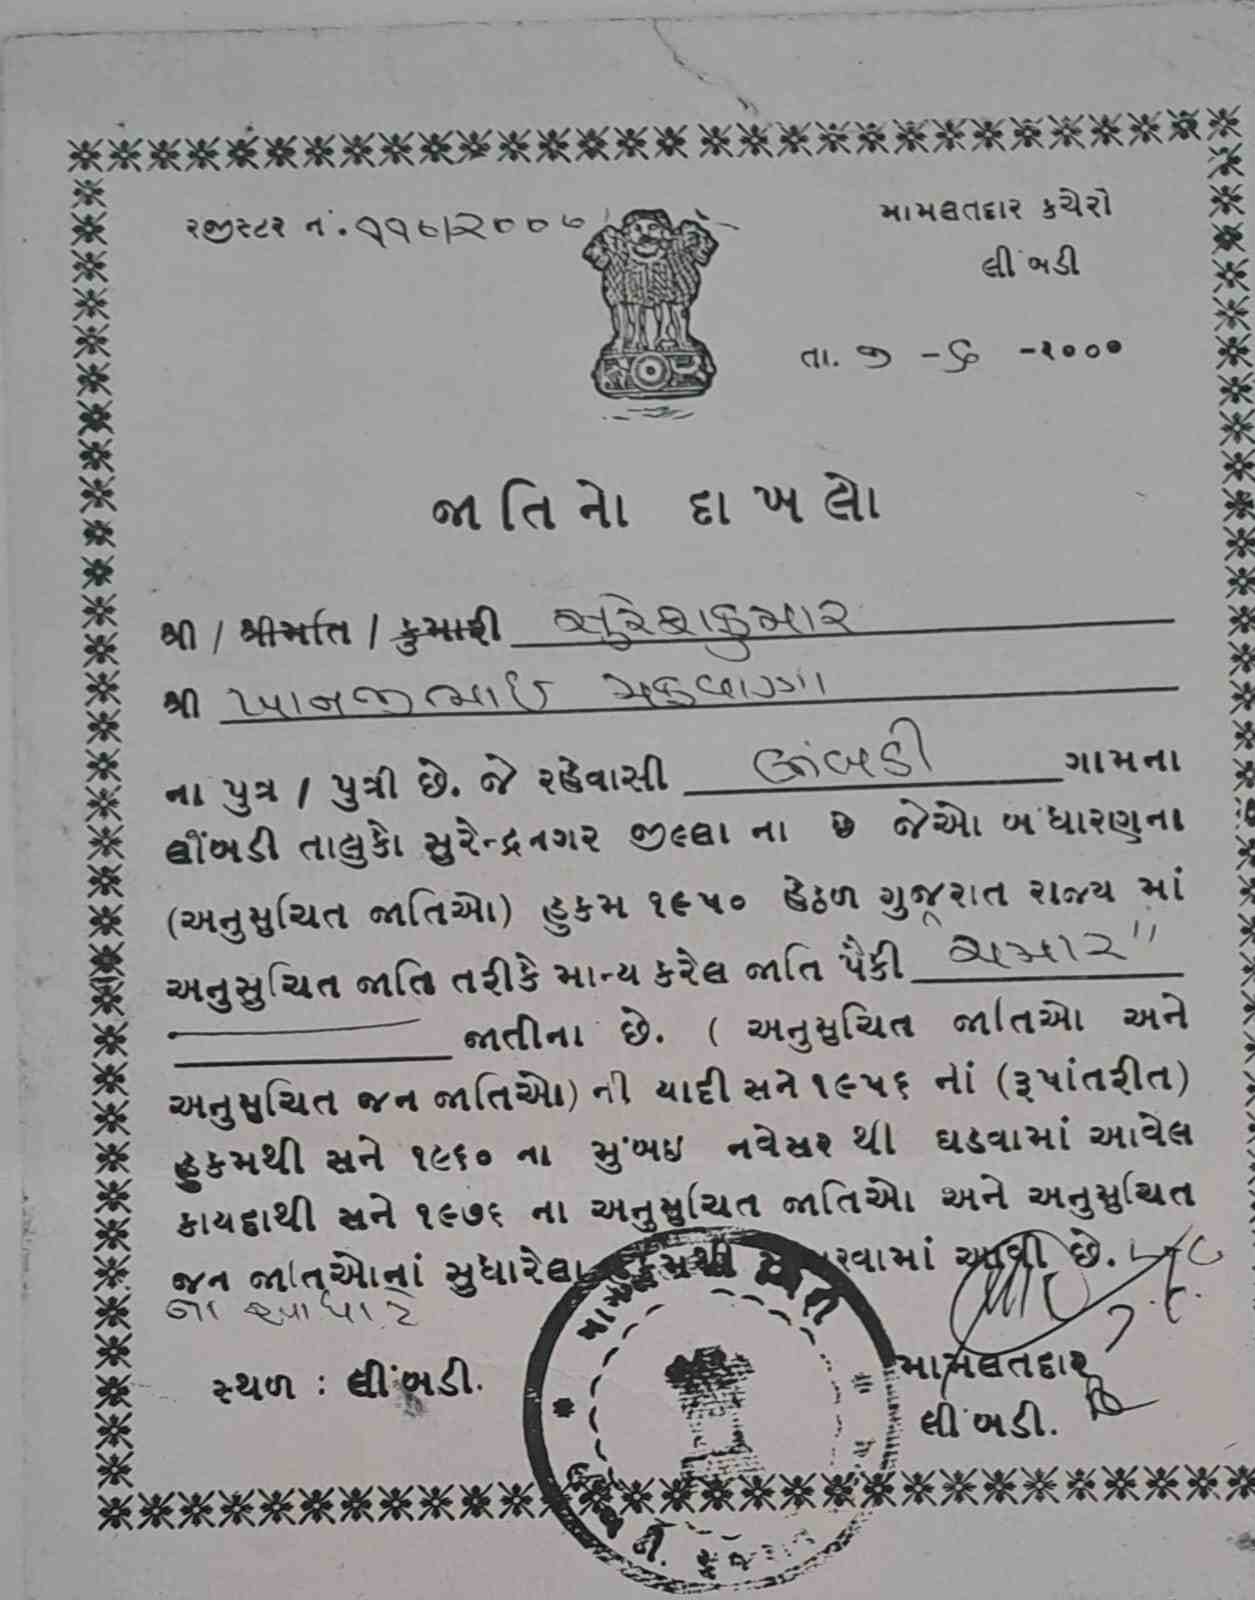 રજીસ્ટર નં.
મામલતદાર કચેરી
લીંબડી
તા. ૭ - ૬ -૨૦૦૦
જાતિનો દાખલો
શ્રી / શ્રીમતિ / કુમારી સુરેશકુમાર
શ્રી ખાનજીભાઈ મકવાણા
ના પુત્ર / પુત્રી છે. જે રહેવાસી લીંબડી ગામના
લીંબડી તાલુકો સુરેન્દ્રનગર જીલ્લા ના છે જેઓ બંધારણના
(અનુસુચિત જાતિઓ) હુકમ ૧૯૫૦ હેઠળ ગુજરાત રાજ્ય માં
અનુસુચિત જાતિ તરીકે માન્ય કરેલ જાતિ પૈકી "ચમાર"
જાતીના છે. ( અનુસુચિત જાતિઓ અને
અનુસુચિત જન જાતિઓ) ની યાદી સને ૧૯૫૬ નાં (રૂપાંતરીત)
હુકમથી સને ૧૯૬૦ ના મુંબઇ નવેસર થી ઘડવામાં આવેલ
કાયદાથી સને ૧૯૭૬ ના અનુસુચિત જાતિઓ અને અનુસુચિત
જન જાતિઓનાં સુધારેલા હુકમથી આવી છે.
ના આધારે
સ્થળ : લીંબડી.
મામલતદાર
લીંબડી.